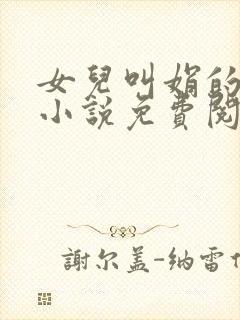 女兒叫娟的
小說免費閱
謝尔盖-纳雷